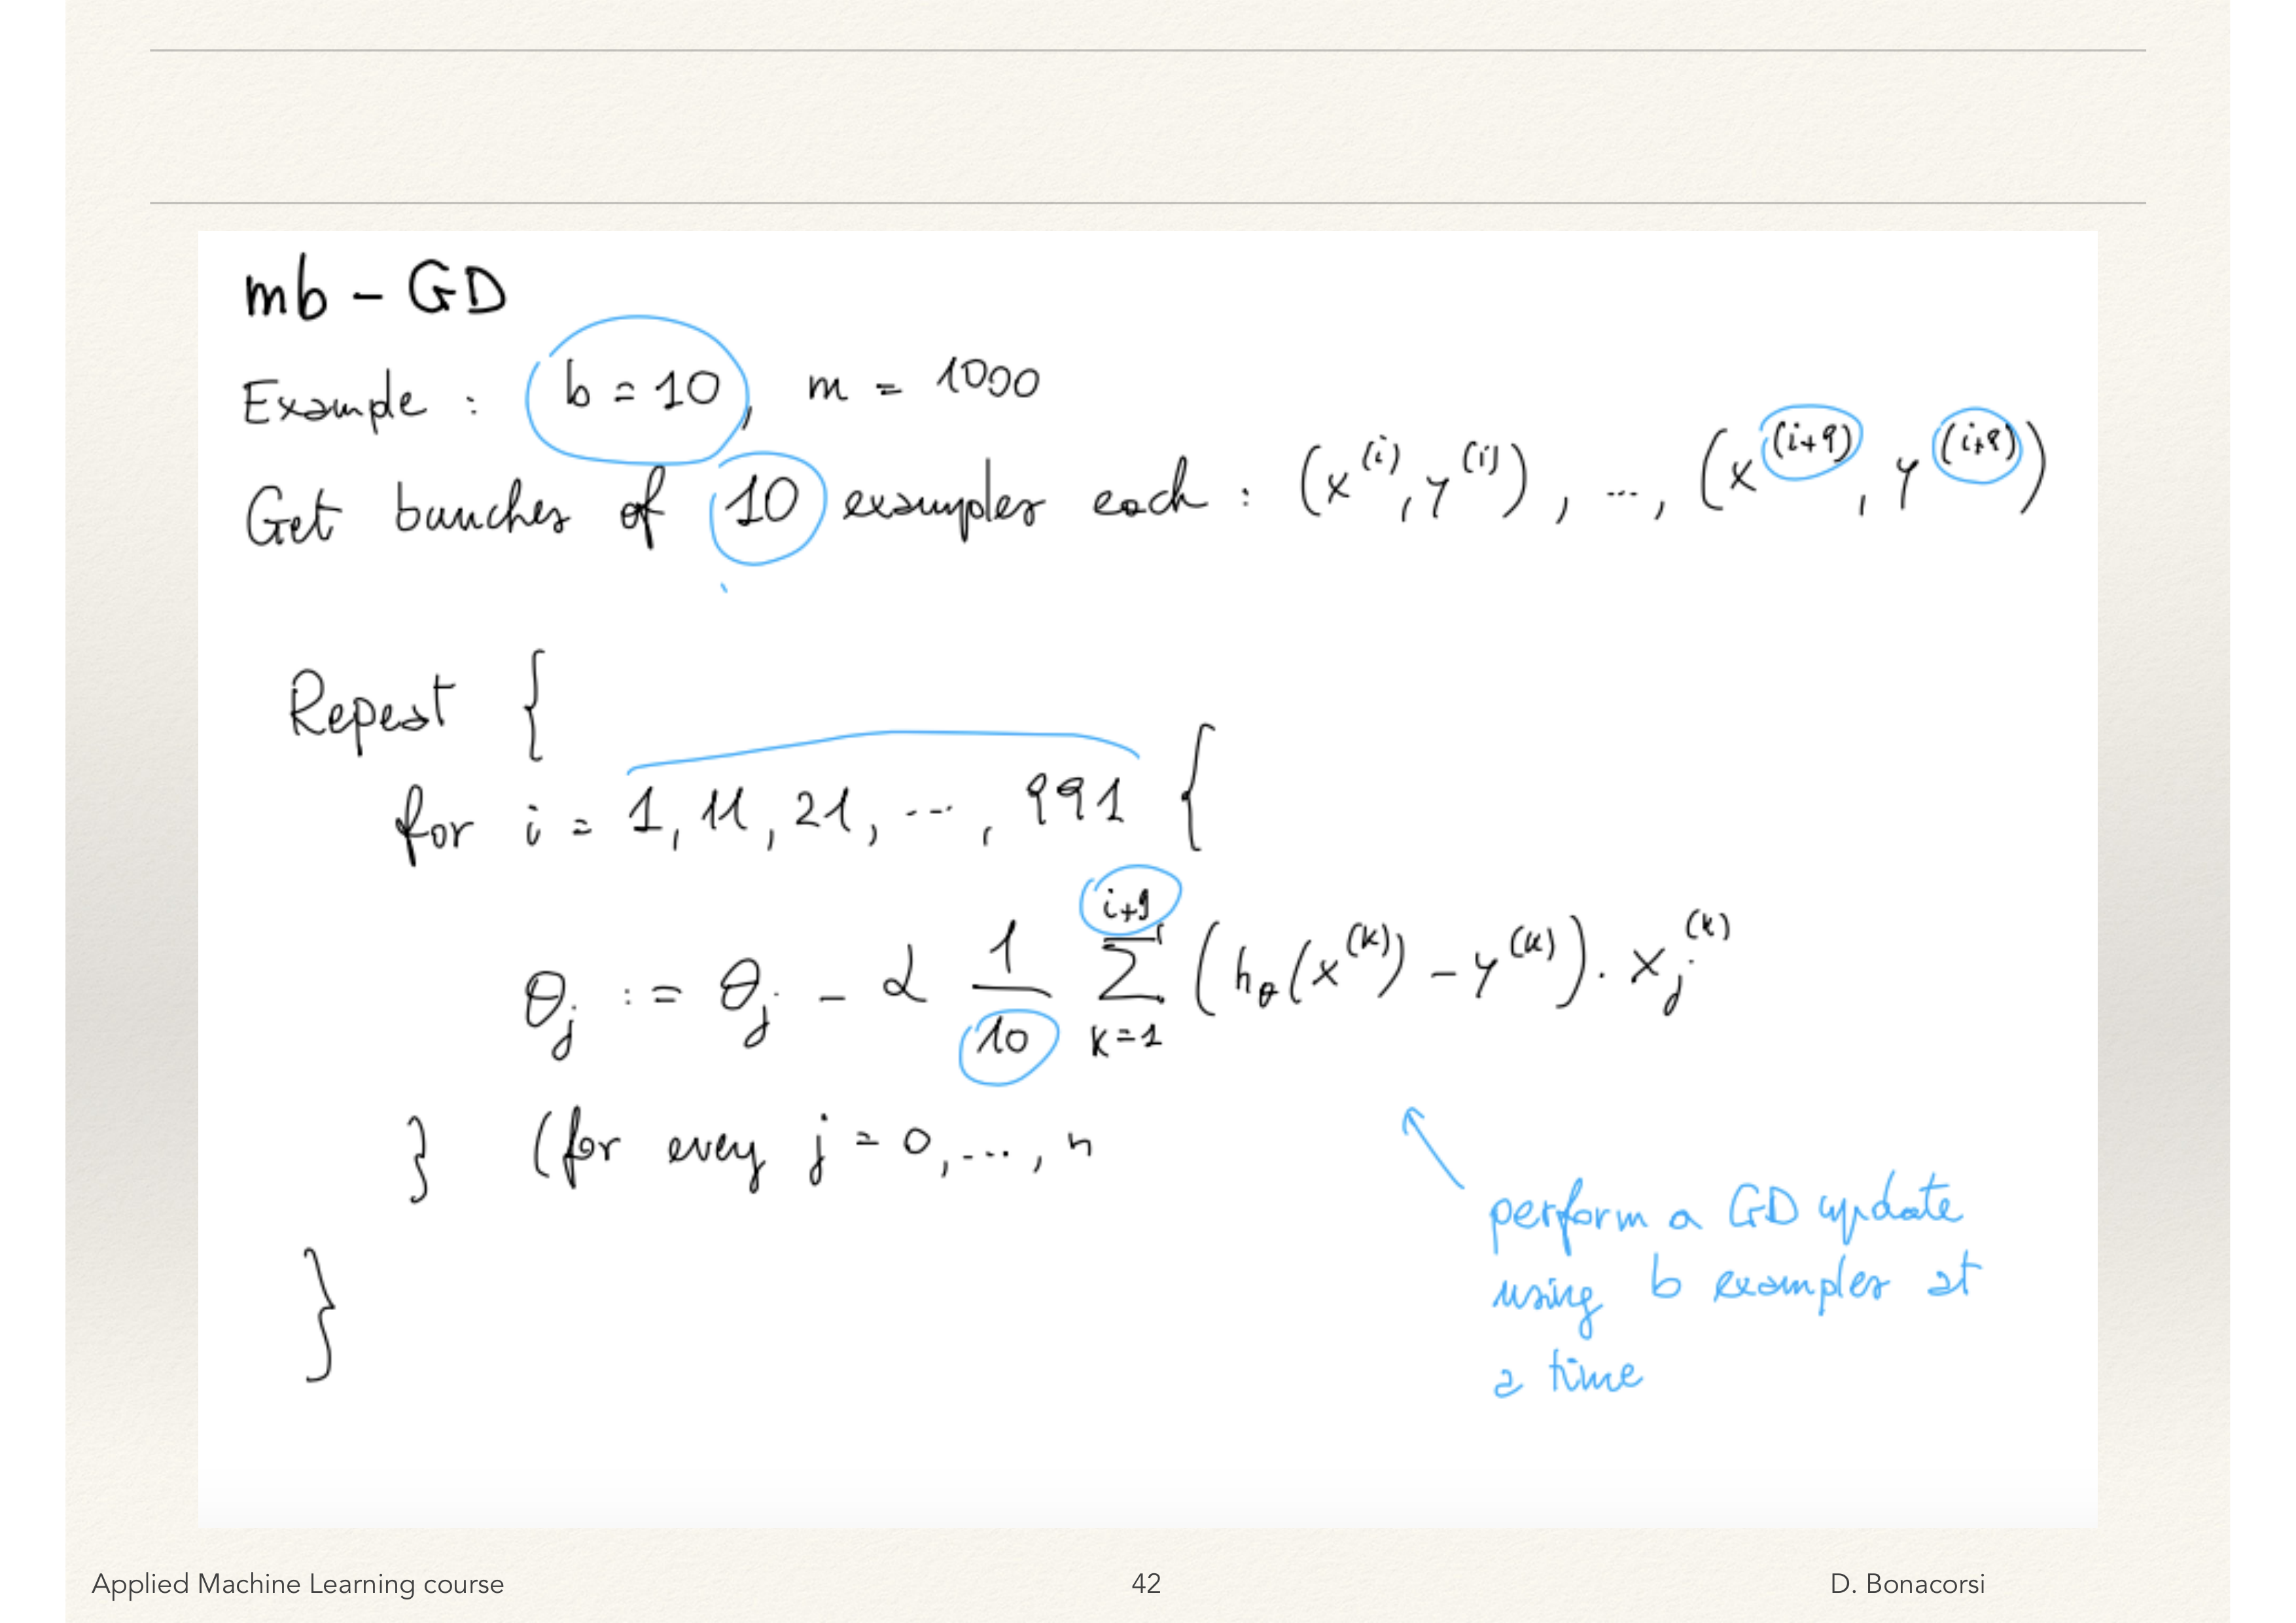 mb - GD
Example : b = 10, m = 1000
Get bunches of 10 examples each : (x^(i), y^(i)), ..., (x^(i+9), y^(i+9))
Repeat {
for i = 1, 11, 21, ..., 991 {
θ_j := θ_j - α 1/10 Σ_{k=1}^{i+9} (h_θ(x^(k)) - y^(k)) · x_j^(k)
} (for every j = 0, ..., n
}
perform a GD update
using b examples at
a time
Applied Machine Learning course
42
D. Bonacorsi